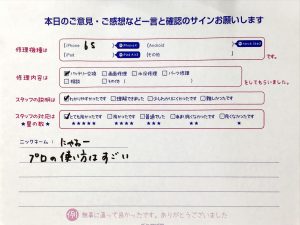 本日のご意見・ご感想など一言と確認のサインお願いします
修理機種は
iPhone 6s
Android
iPad
その他
です。
修理内容は
バッテリー交換 画面修理 水没修理 パーツ修理
相談 その他
をしてもらいました。
スタッフの説明は
わかりやすかったです 理解できました 少しわかりにくかったです 難しかったです
スタッフの対応は
★星の数★
とても良かったです 良かったです 普通でした あまり良くなかったです 良くなかったです
★★★★★ ★★★★ ★★★ ★★ ★
ニックネーム: にゃみー
プロの使い方はすごい
無事に直って良かったです。ありがとうございました